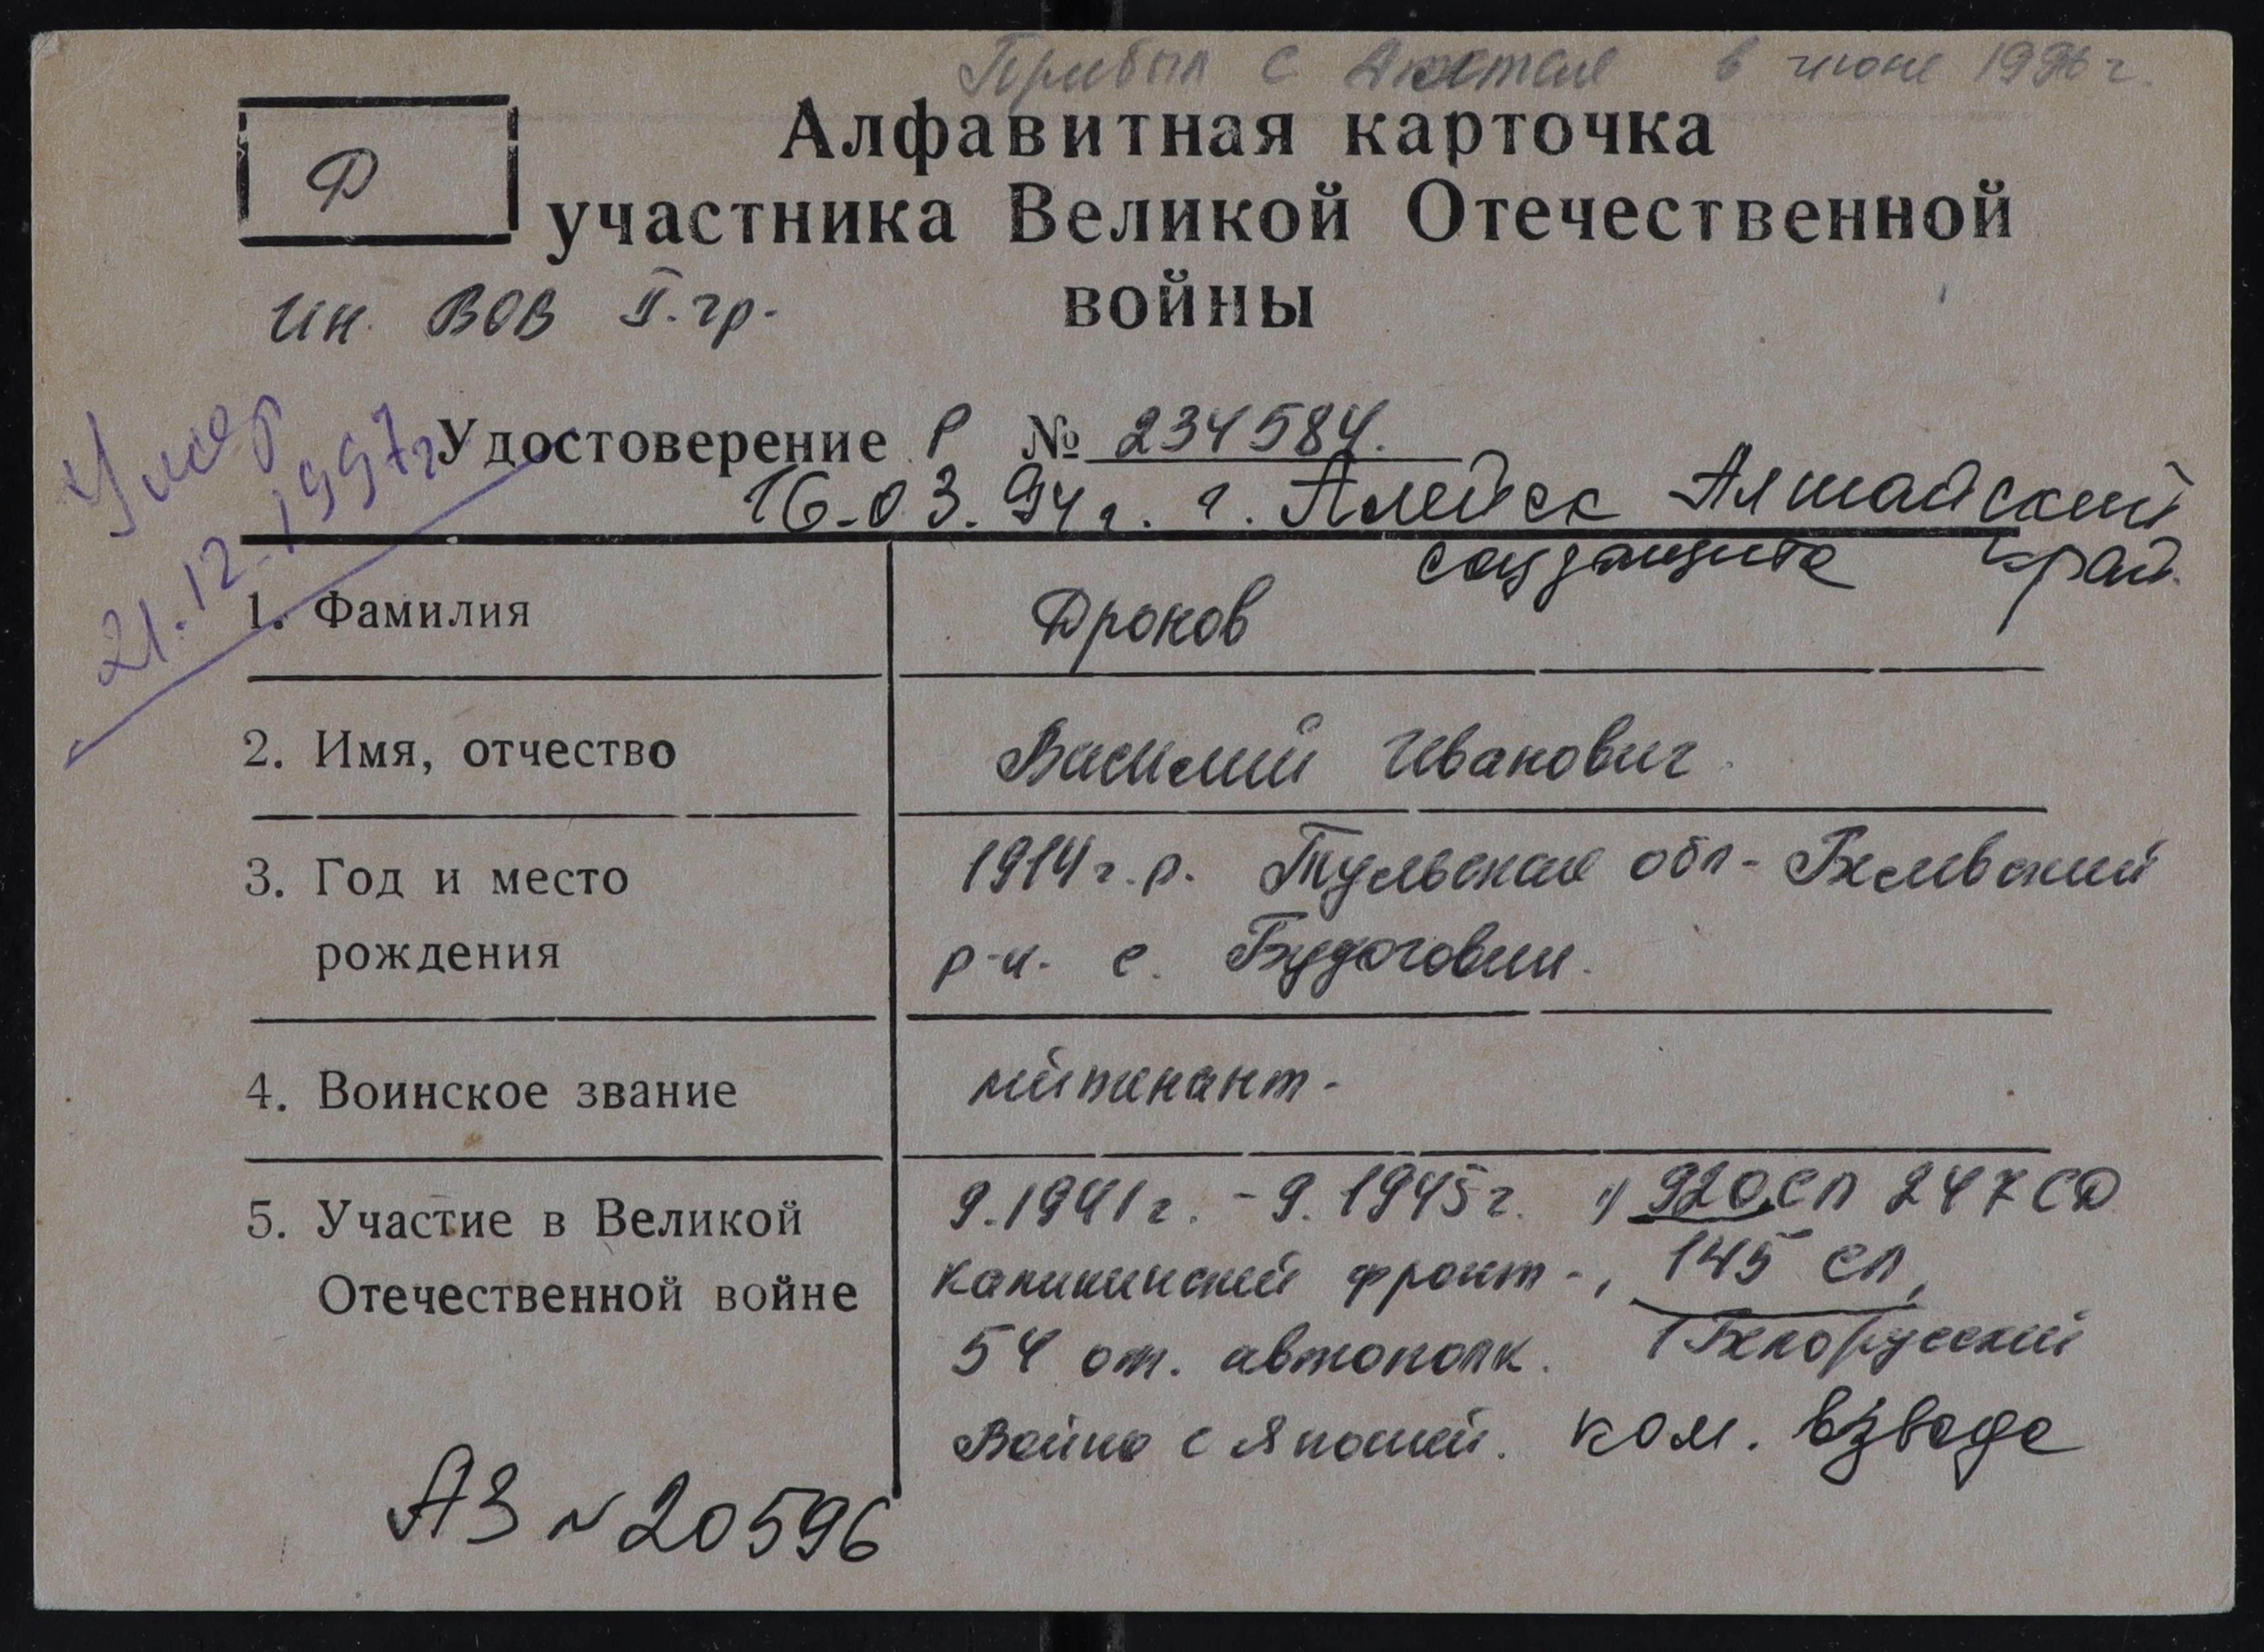 Прибыл с Алтая в июне 1996 г.
Алфавитная карточка
Д
участника Великой Отечественной
войны
ин. ВОВ II. гр.
Умер
21.12.1997г
Удостоверение Р № 234584.
16.03.94г. г. Алейск Алтайский
соцзащита край.
1. Фамилия Дроков
2. Имя, отчество Василий Иванович.
3. Год и место 1914 г.р. Тульская обл- Белевский
рождения р-н. с. Будоговии.
4. Воинское звание лейтенант-
5. Участие в Великой 9.1941г. - 9.1945г. 1) 920 сп 247 СД
Отечественной войне Калининский фронт-, 145 сп,
54 от. автополк. 1 Белорусский
Война с Японией. ком. взвода
АЗ № 20596